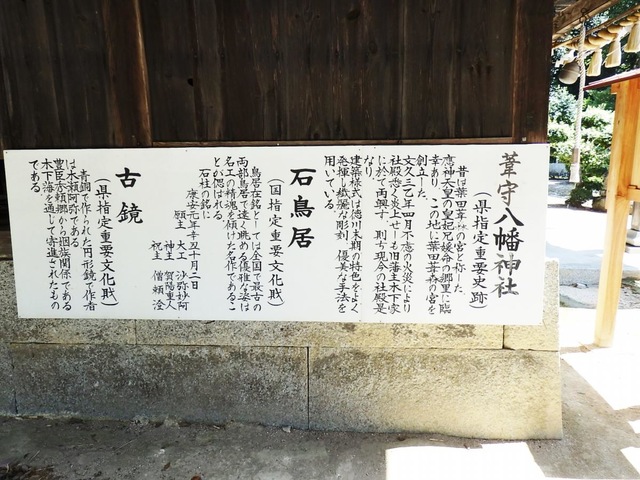 葦守八幡神社
（県指定重要史跡）
昔は葉田葦秣の宮と称した
應神天皇の皇妃兄媛命の郷里に臨
幸あり、この地に葉田葦森の宮を
創立した。
文久三乙年四月不慮の火災により
社殿悉く炎上せ－も旧藩主木下家
に於て再興す、則ち現今の社殿是
なり。
建築様式は徳川末期の特色をよく
発揮し繊麗な彫刻、優美な手法を
用いている。
石鳥居
（国指定重要文化財）
鳥居在銘としては全国で最古の
両部鳥居で遠く眺める優雅な姿は
名工の精魂を傾けた名作であるこ
とが偲ばれる。
石柱の銘に
康安元年辛丑十月二日
願主 大工 沙弥妙阿
神主 賀陽重人
祝主 僧頼澄
古鏡
（県指定重要文化財）
青銅で作られた円形鏡で作者
は木瀬阿弥である
豊臣秀頼郷から廻族関係である
木下藩を通して寄進されたもの
である